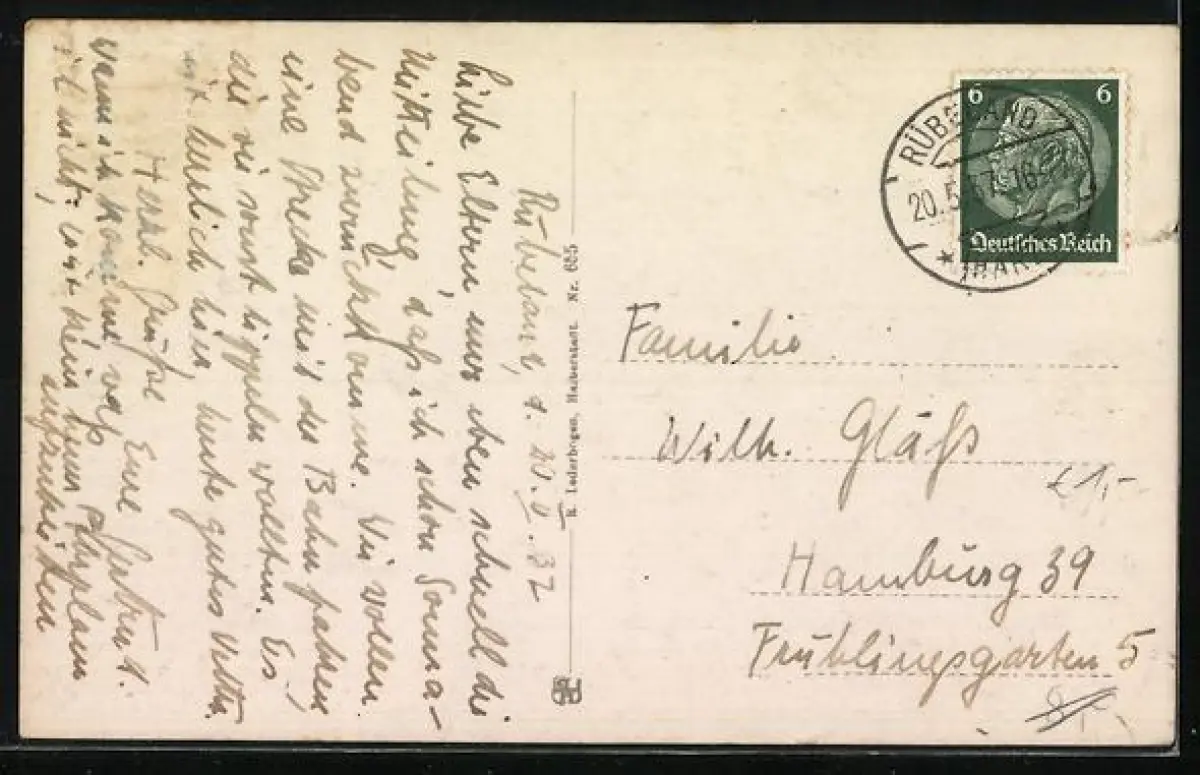 Rübeland, d. 20.V.37
Liebe Eltern nur eben schnell die
Mitteilung, daß ich schon Sonna-
bend zurückkomme. Wir wollen
eine Strecke mit der Bahn fahren,
die wir sonst tippeln wollten. Es
ist herrlich hier, heute gutes Wetter.
Herzl. Grüße Eure Gertrud.
wenn ich komme weiß
ich nicht, kein
R. Lederbogen, Halberstadt. Nr. 655
6 6
Deutsches Reich
RÜBELAND
20.5.
(HARZ)
Familie
Wilh. Gläß
£1,-
Hamburg 39
Frühlingsgarten 5